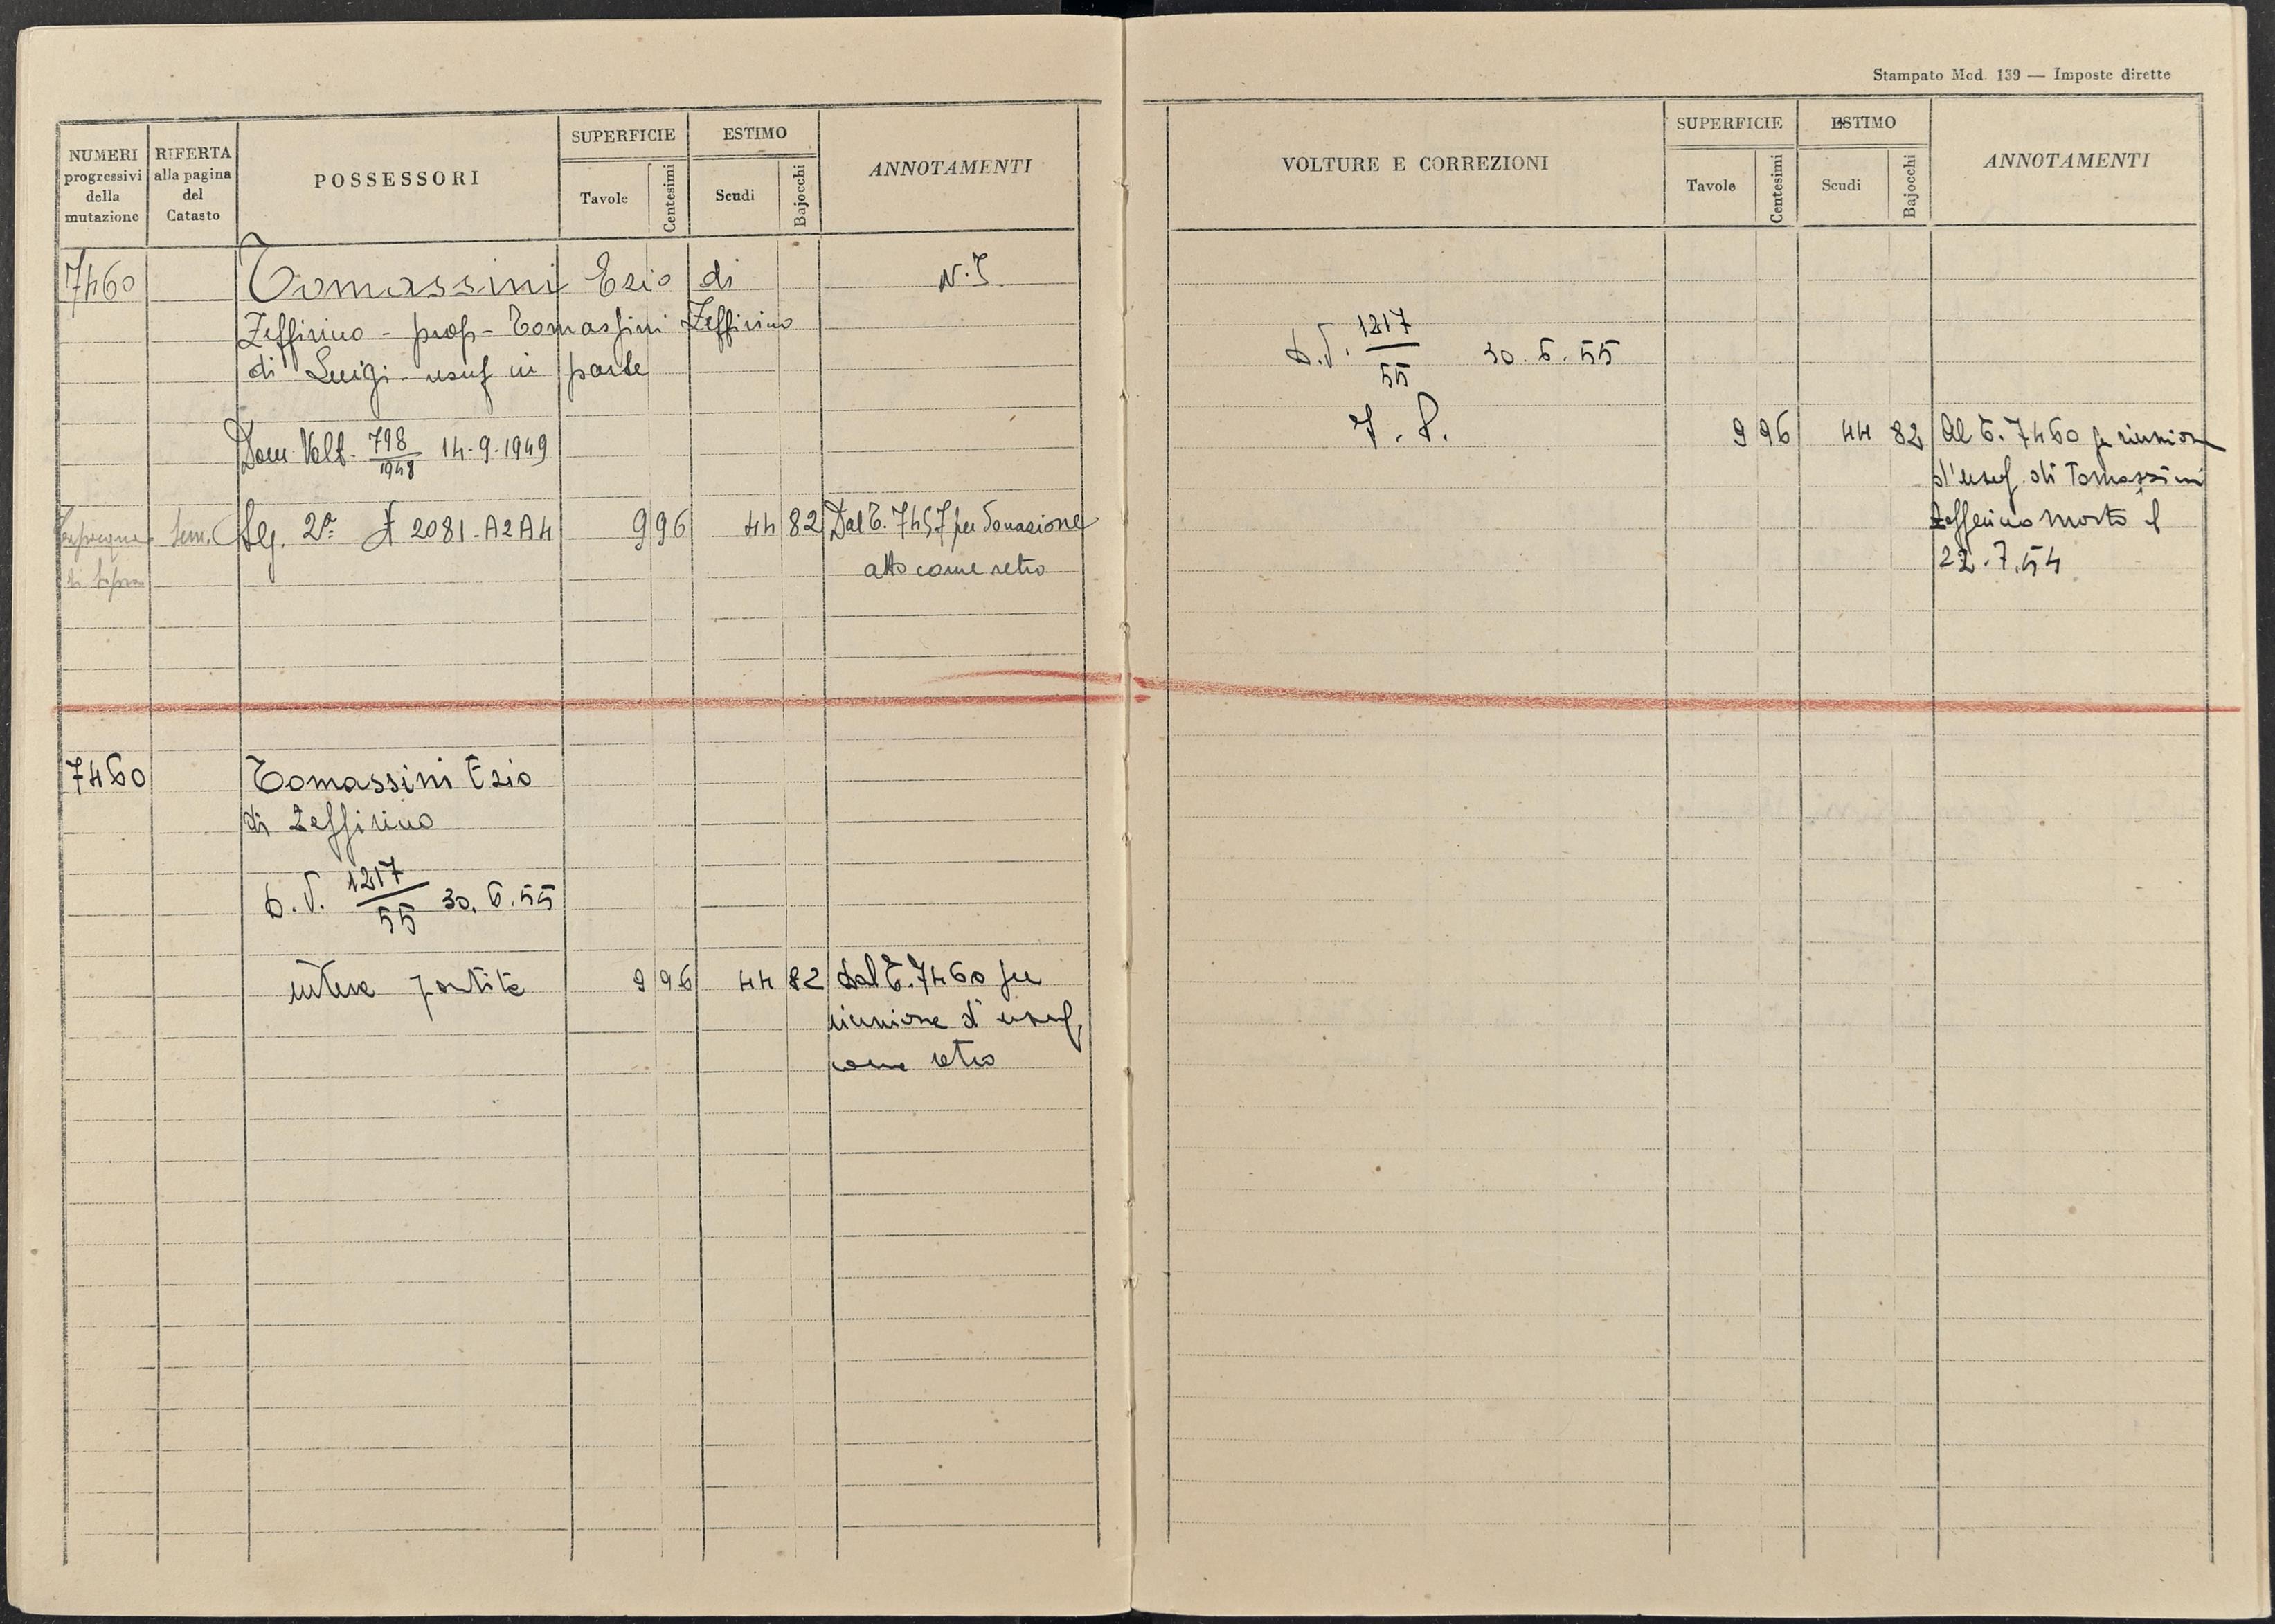 NUMERI progressivi della mutazione
RIFERTA alla pagina del Catasto
POSSESSORI
SUPERFICIE
Tavole
Centesimi
ESTIMO
Scudi
Bajocchi
ANNOTAMENTI
7460
Tomassini Ezio di
Zeffirino - prop - Tomassini Zeffirino
di Luigi usuf in parte
Dom Volt. 798/1948 14-9-1949
Sez. 2ª 2081-A2A4 9 96 44 82 Dal T. 7457 per Donazione
atto come retro
7460 Tomassini Ezio
di Zeffirino
D.V. 1217/55 30.6.55
intera partita 9 96 44 82 Dal T. 7460 per
riunione d'usuf,
come retro
Stampato Mod. 139 — Imposte dirette
VOLTURE E CORREZIONI
SUPERFICIE
Tavole
Centesimi
ESTIMO
Scudi
Bajocchi
ANNOTAMENTI
D.V. 1217/55 30.6.55
9 96 44 82 Al T. 7460 per riunione
d'usuf. di Tomassini
Zefferino morto il
22.7.54